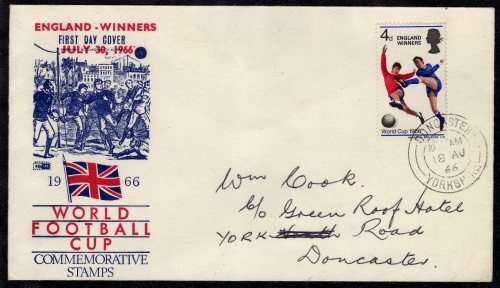 ENGLAND - WINNERS
FIRST DAY COVER
JULY 30, 1966
1966
WORLD
FOOTBALL
CUP
COMMEMORATIVE
STAMPS
4d ENGLAND
WINNERS
World Cup 1966
DONCASTER
AM
18 AU
66
YORKSHIRE
Wm Cook.
c/o Green Roof Hotel
YORK Road
Doncaster.